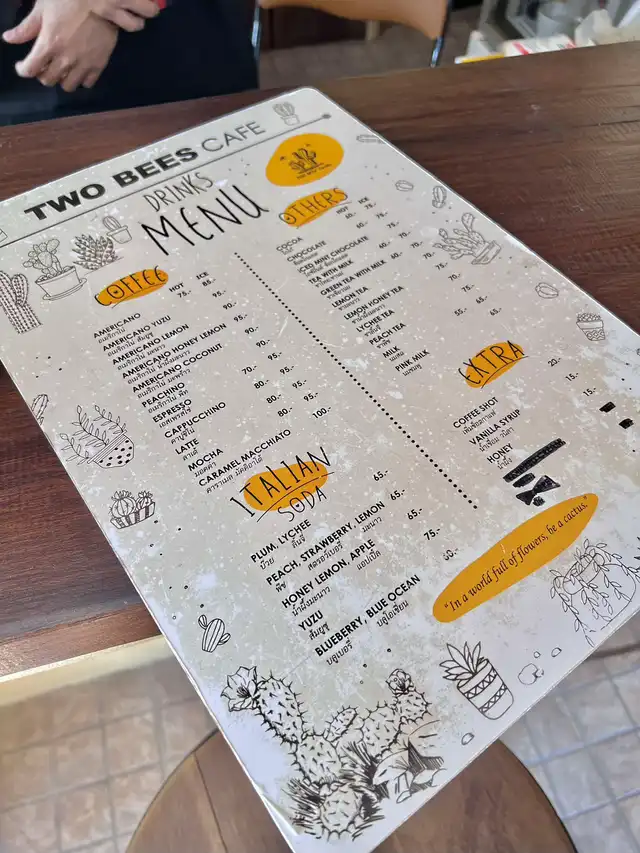 TWO BEES CAFE
DRINKS
MENU
COFFEE
HOT ICE
AMERICANO 75.- 85.-
อเมริกาโน่
AMERICANO YUZU 95.-
อเมริกาโน่ ส้มยูซุ
AMERICANO LEMON 90.-
อเมริกาโน่ มะนาว
AMERICANO HONEY LEMON 95.-
อเมริกาโน่ น้ำผึ้งมะนาว
AMERICANO COCONUT 90.-
อเมริกาโน่ มะพร้าว
PEACHINO 90.-
อเมริกาโน่ พีช
ESPRESSO 70.- 95.-
เอสเพรสโซ่
CAPPUCCHINO 80.- 95.-
คาปูชิโน่
LATTE 80.- 95.-
ลาเต้
MOCHA 80.- 95.-
มอคค่า
CARAMEL MACCHIATO 100.-
คาราเมล มัคคิอาโต้
ITALIAN
SODA
PLUM, LYCHEE 65.-
บ๊วย ลิ้นจี่
PEACH, STRAWBERRY, LEMON 65.-
พีช สตรอว์เบอรี่ มะนาว
HONEY LEMON, APPLE 65.-
น้ำผึ้งมะนาว แอปเปิ้ล
YUZU 75.-
ส้มยูซุ
BLUEBERRY, BLUE OCEAN 60.-
บลูเบอรี่ บลูโอเชี่ยน
OTHERS
HOT ICE
COCOA
โกโก้
CHOCOLATE
ช็อกโกแลต
ICED MINT CHOCOLATE
TEA WITH MILK
GREEN TEA WITH MILK
ชาเขียวนม
LEMON TEA
ชามะนาว
LEMON HONEY TEA
LYCHEE TEA
ชาลิ้นจี่
PEACH TEA
ชาพีช
MILK 55.- 65.-
นมสด
PINK MILK 65.-
นมชมพู
EXTRA
COFFEE SHOT 20.-
เพิ่มช็อตกาแฟ
VANILLA SYRUP 15.-
น้ำเชื่อม วนิลา
HONEY 15.-
น้ำผึ้ง
"In a world full of flowers, be a cactus."